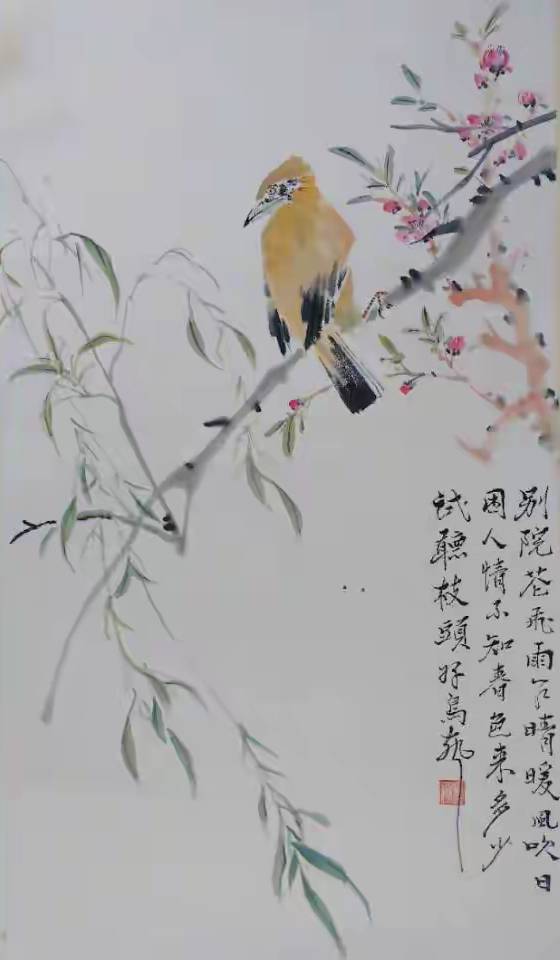 别院花飛雨乍晴暖風吹日
困人情不知春色来多少
試聽枝頭好鳥聲